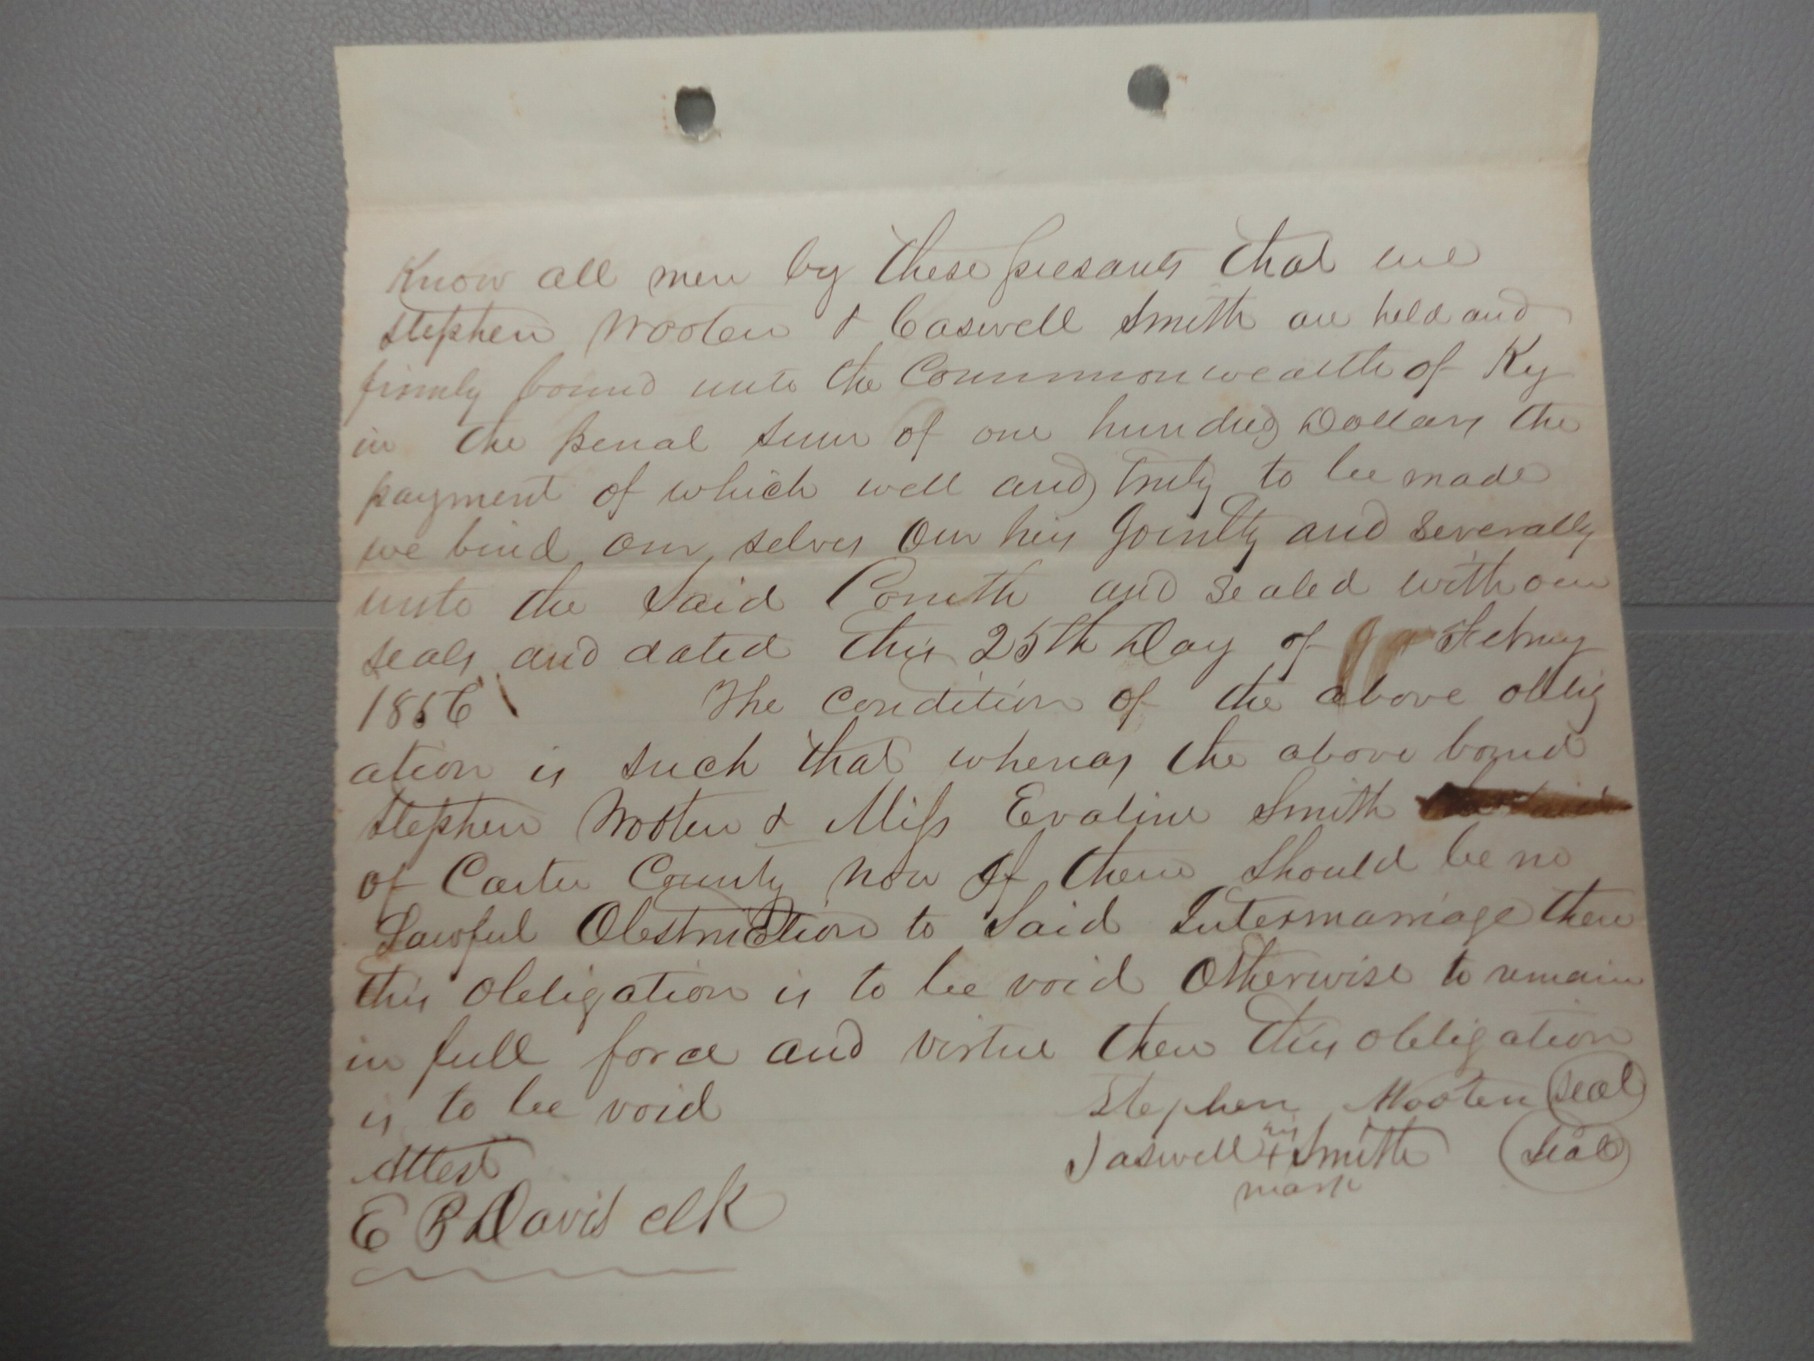 Know all men by these presants that we
Stephen Wooten & Caswell Smith are held and
firmly bound unto the Commonwealth of Ky
in the penal sum of one hundred Dollars the
payment of which well and truly to be made
we bind our selves Our heirs Jointly and severally
unto the Said Comth and sealed with our
seals and dated this 25th Day of Febuary
1856 The condition of the above oblig
ation is such that whereas the above bound
Stephen Wooten & Miss Evaline Smith
of Carter County now If there should be no
Lawful Obstruction to Said Intermarriage then
this obligation is to be void Otherwise to remain
in full force and virtue then this obligation
is to be void
Stephen Wooten seal
Caswell his x Smith seal
mark
Attest
E B Davis clk